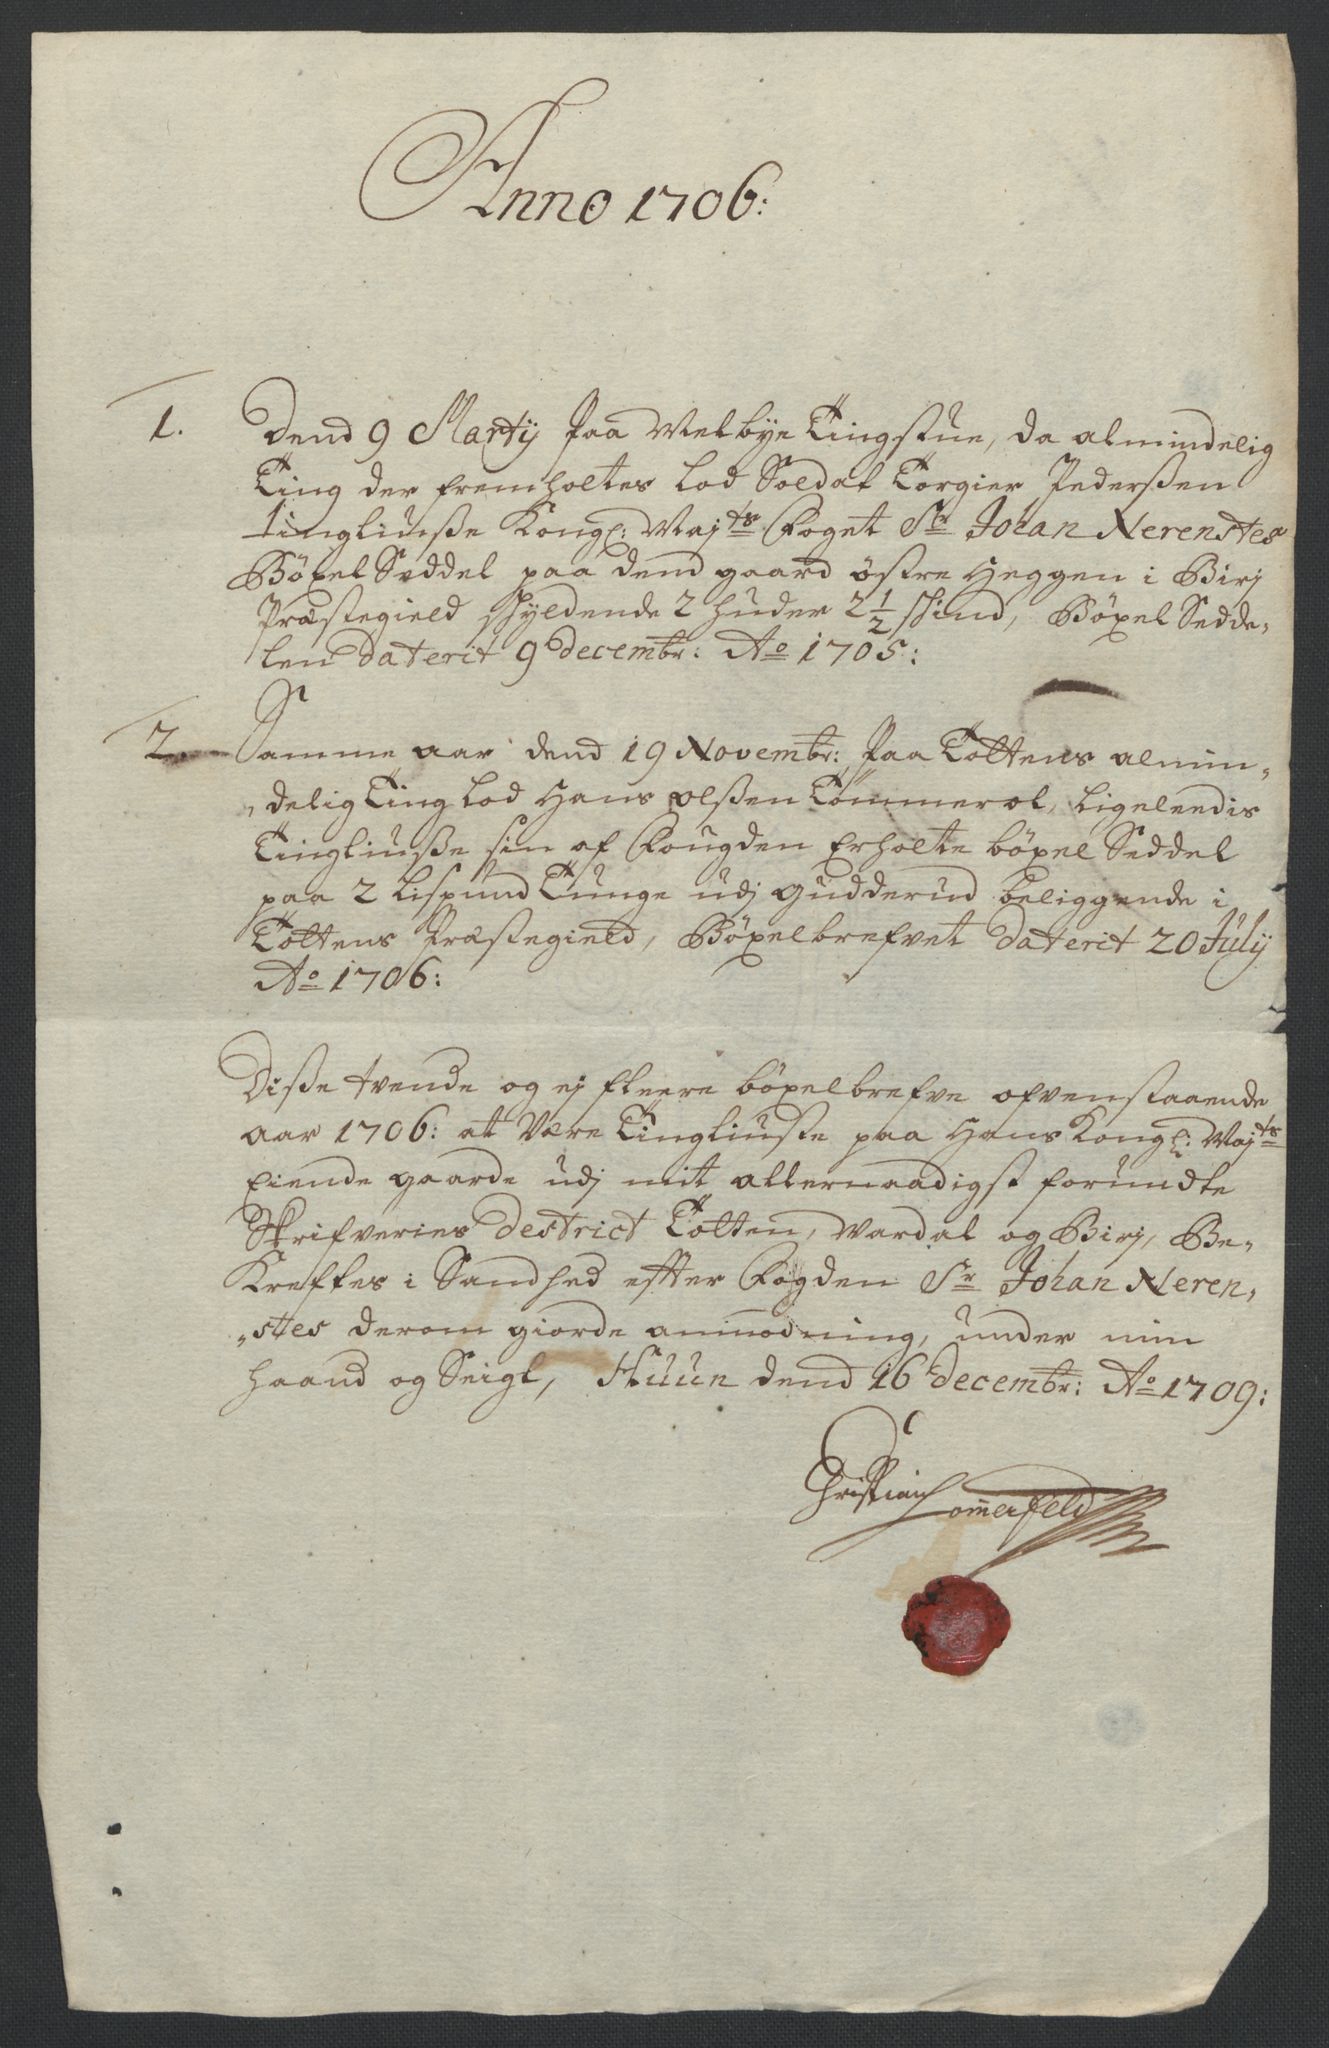 Anno 1706:
1. Dend 9 Martij paa Melbÿe Tingstue, da almindelig
Ting der fremholtes lod Soldat Torgier Pederßen
tingliuße Kongl: Maÿts Foget Sr Johan Nerenstes
Böxel Seddel paa dend gaard östre Heggen i Birj
Præstegield skÿldende 2 huder 2½ skind, Böxel Sedde,
len daterit 9 decembr: Ao 1705:
2. Samme aar dend 19 Novembr: paa Tottens almin,
,delig Ting lod Hans olßen Tömmerol, ligeleedis
Tingliuße sin af Fougden Erholte böxel Seddel
paa 2 Lispund Tunge udj Gudderud beliggende i
Tottens Præstegield, Böxelbrefvet daterit 20 Julÿ
Ao 1706:
Diße tvende og ej fleere böxelbrefve ofvenstaaende
aar 1706: at Være Tingliuste paa Hans Kongl: Maÿts
Eiende gaarde udj mit allernaadigst forundte
Skrifveries destrict Totten, Vardal og Birj, Be,
Kreftes i Sandhed efter Fogden Sr Johan Neren,
,stes derom giorde anmodning, under min
haand og Seigl, Huun dend 16 decembr: Ao 1709:
Christian Sommerfeld